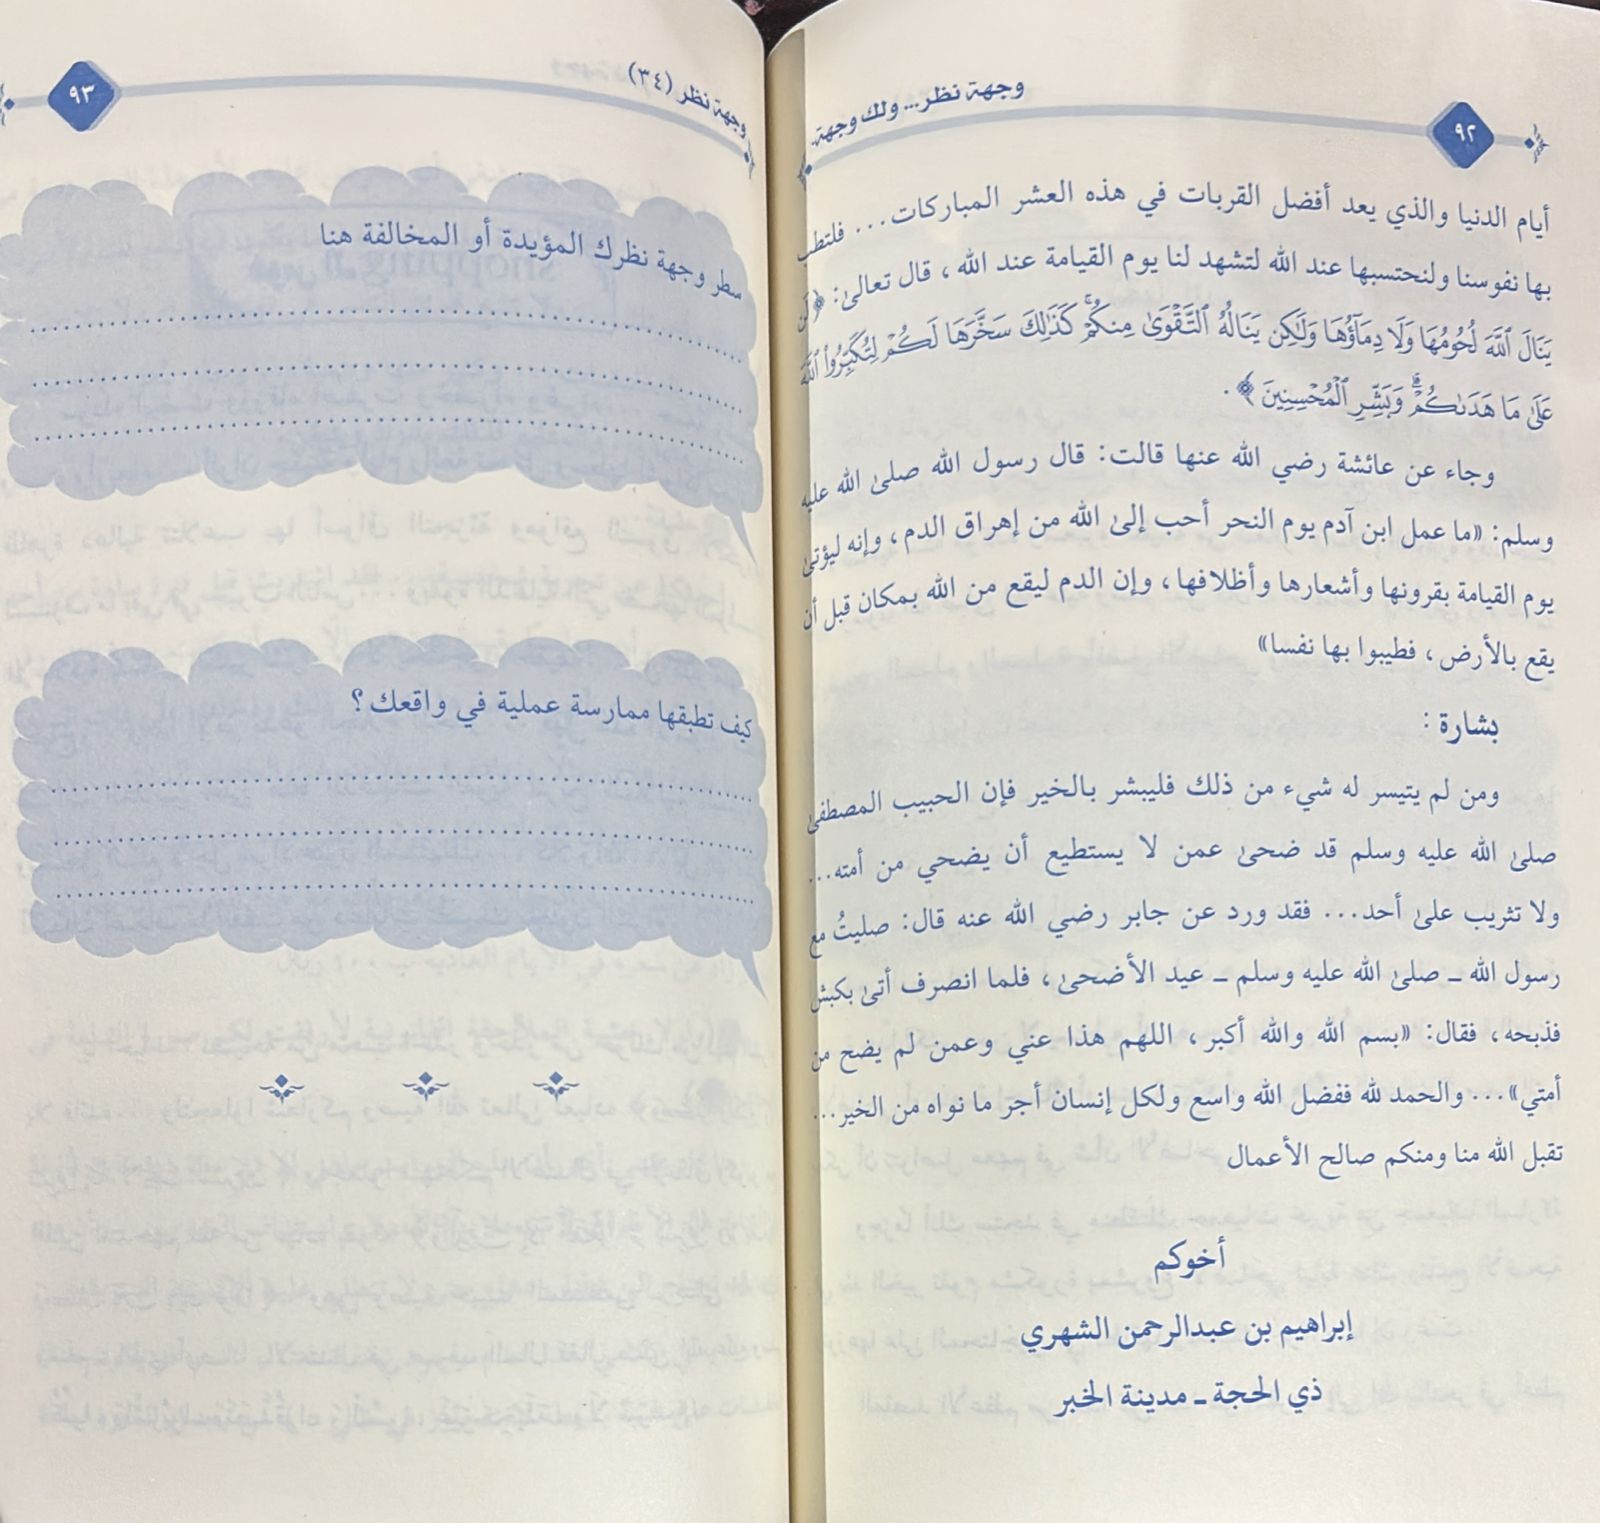 وجهة نظر... ولك وجهة.
٩٢
أيام الدنيا والذي يعد أفضل القربات في هذه العشر المباركات... فلتطب
بها نفوسنا ولنحتسبها عند الله لتشهد لنا يوم القيامة عند الله، قال تعالى: ﴿لَن
يَنَالَ ٱللَّهَ لُحُومُهَا وَلَا دِمَآؤُهَا وَلَٰكِن يَنَالُهُ ٱلتَّقْوَىٰ مِنكُمْ ۚ كَذَٰلِكَ سَخَّرَهَا لَكُمْ لِتُكَبِّرُوا۟ ٱللَّهَ
عَلَىٰ مَا هَدَىٰكُمْ ۗ وَبَشِّرِ ٱلْمُحْسِنِينَ﴾.
وجاء عن عائشة رضي الله عنها قالت: قال رسول الله صلى الله عليه
وسلم: «ما عمل ابن آدم يوم النحر أحب إلى الله من إهراق الدم، وإنه ليؤتى
يوم القيامة بقرونها وأشعارها وأظلافها، وإن الدم ليقع من الله بمكان قبل أن
يقع بالأرض، فطيبوا بها نفسا»
بشارة:
ومن لم يتيسر له شيء من ذلك فليبشر بالخير فإن الحبيب المصطفى
صلى الله عليه وسلم قد ضحى عمن لا يستطيع أن يضحي من أمته...
ولا تثريب على أحد... فقد ورد عن جابر رضي الله عنه قال: صليتُ مع
رسول الله ـ صلى الله عليه وسلم ـ عيد الأضحى، فلما انصرف أتى بكبش
فذبحه، فقال: «بسم الله والله أكبر، اللهم هذا عني وعمن لم يضح من
أمتي»... والحمد لله ففضل الله واسع ولكل إنسان أجر ما نواه من الخير...
تقبل الله منا ومنكم صالح الأعمال
أخوكم
إبراهيم بن عبدالرحمن الشهري
ذي الحجة ـ مدينة الخبر
وجهة نظر (٣٤)
٩٣
سطر وجهة نظرك المؤيدة أو المخالفة هنا
كيف تطبقها ممارسة عملية في واقعك؟